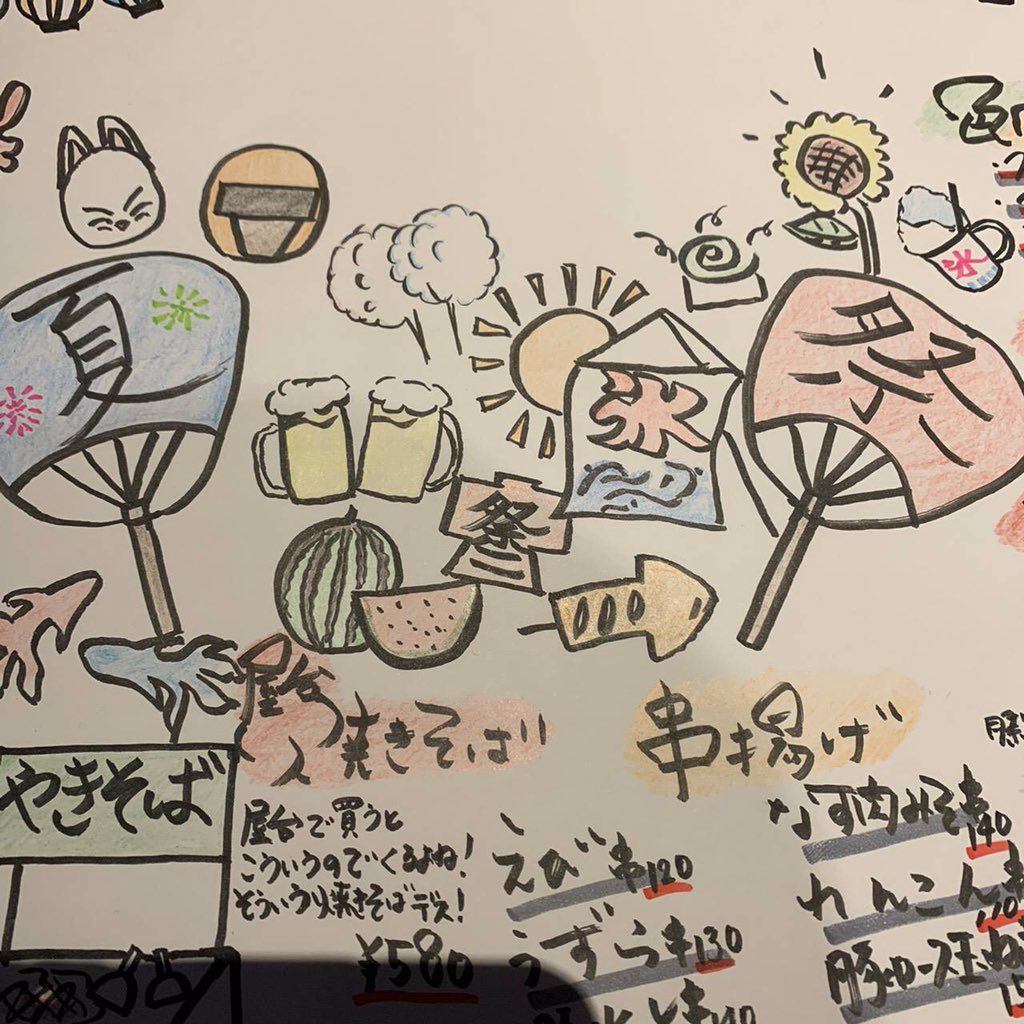 夏
祭
氷
氷
祭
屋台
焼きそば
串揚げ
やきそば
屋台で買うと
こういうのでくるよね!
そういう焼きそばデス!
¥580
えび串120
うずら串130
なす肉みそ串140
れんこん串